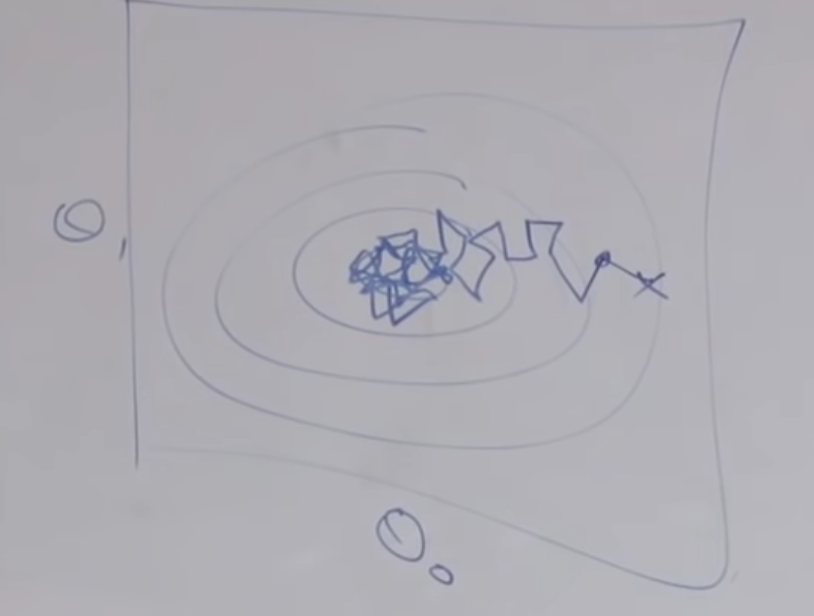 θ₁
θ₀